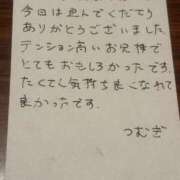 今日は選んでくださり
ありがとうございました
テンション高いお兄様で
とてもおもしろかったです。
たくさん気持ち良くなれて
良かったです。
つむぎ